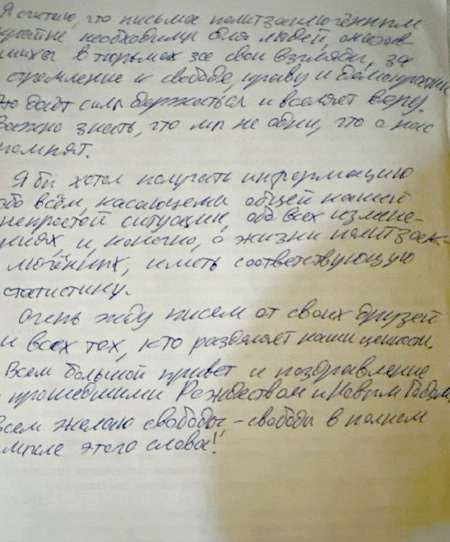 Я считаю, что письма политзаключённым
крайне необходимы для людей, оказав-
шихся в тюрьмах за свои взгляды, за
стремление к свободе, праву и демократии.
Это даёт силы держаться и вселяет веру.
Важно знать, что мы не одни, что о нас
помнят.
Я бы хотел получать информацию
обо всём, касающемся общей нашей
непростой ситуации, обо всех измене-
ниях, и, конечно, о жизни политзак-
лючённых, иметь соответствующую
статистику.
Очень жду писем от своих друзей
и всех тех, кто разделяет наши ценности.
Всем большой привет и поздравление
с прошедшими Рождеством и Новым Годом.
Всем желаю свободы – свободы в полном
смысле этого слова!